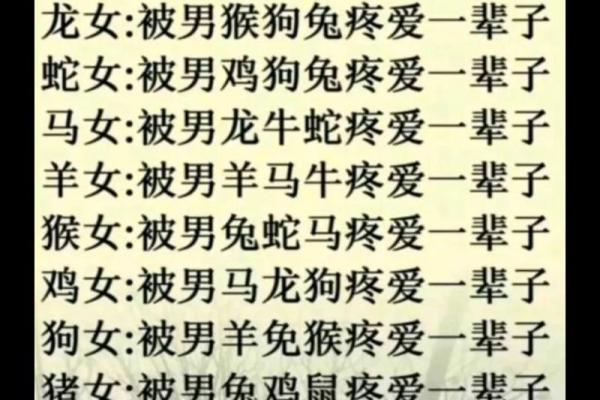 龙女:被男猴狗兔疼爱一辈子
蛇女:被男鸡狗兔疼爱一辈子
马女:被男龙牛蛇疼爱一辈子
羊女:被男羊马牛疼爱一辈子
猴女:被男兔蛇马疼爱一辈子
鸡女:被男马龙狗疼爱一辈子
狗女:被男羊免猴疼爱一辈子
猪女:被男兔鸡鼠疼爱一辈子